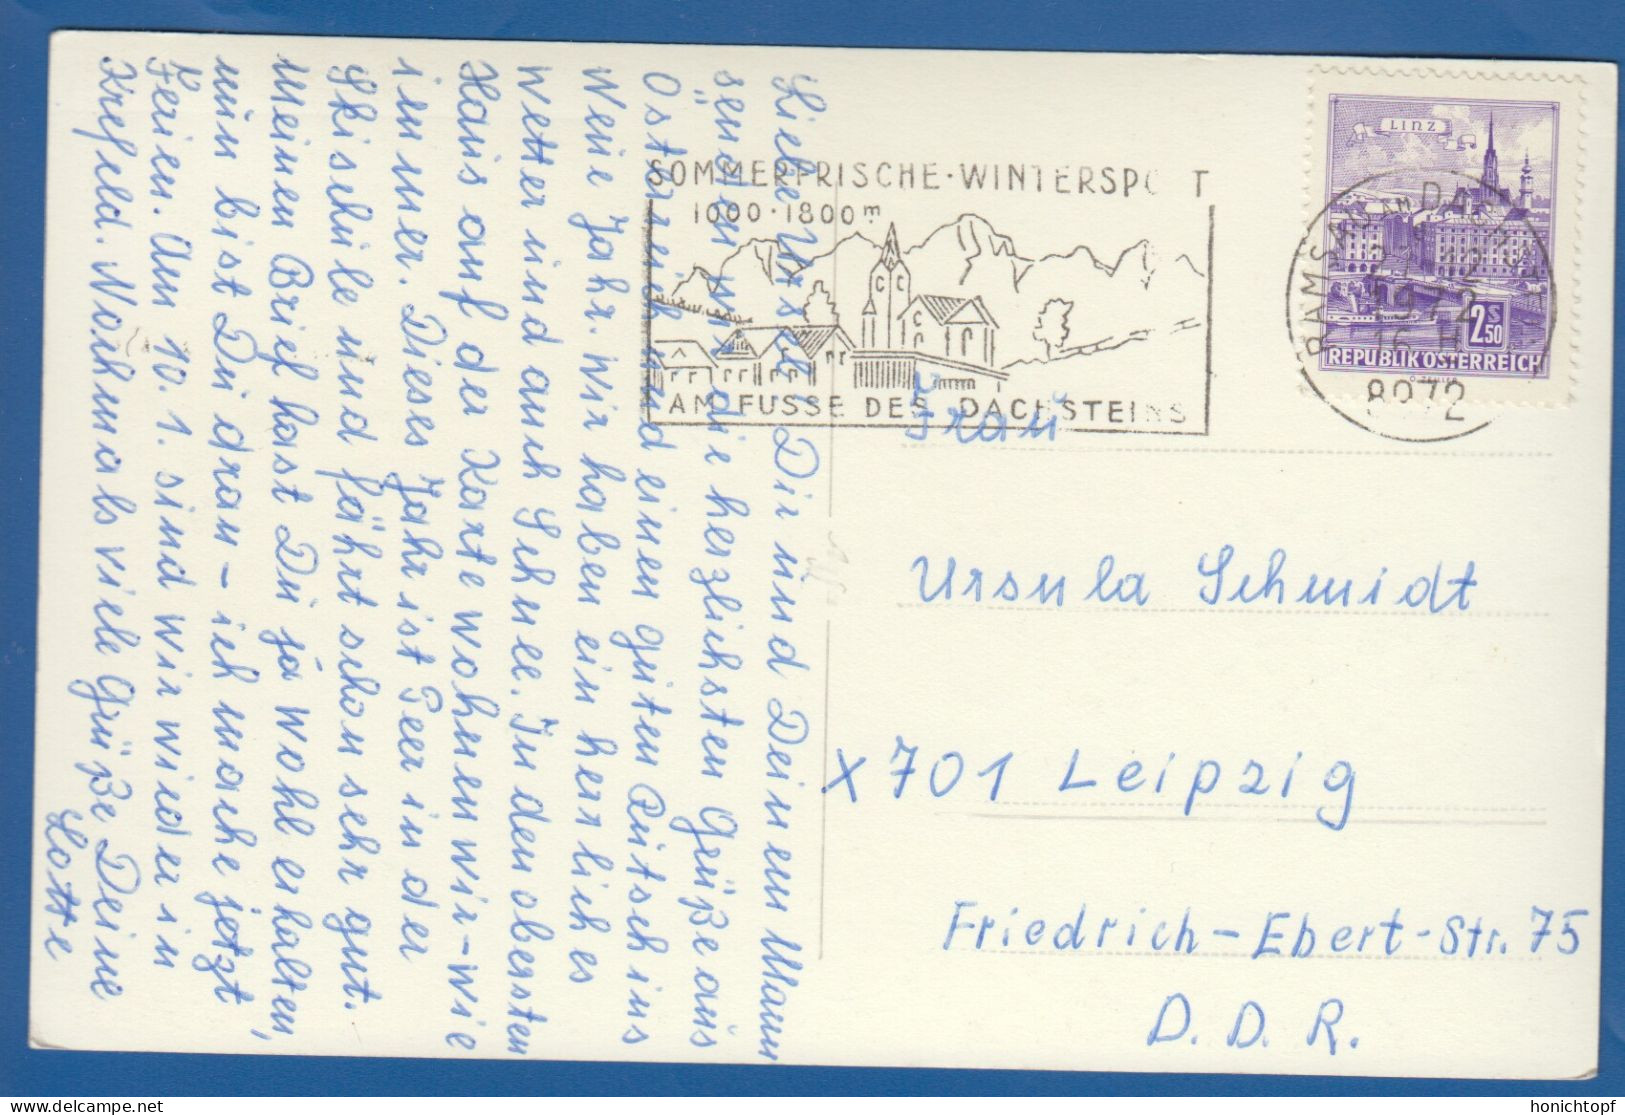 Liebe Ursel! Dir und Deinem Mann
senden wir die herzlichsten Grüße aus
Österreich und einen guten Rutsch ins
neue Jahr. Wir haben ein herrliches
Wetter und auch Schnee. In den obersten
Haus auf der Karte wohnen wir – wie
immer. Dieses Jahr ist Peer in der
Skischule und fährt schon sehr gut.
Meinen Brief hast Du ja wohl erhalten,
nun bist Du dran – ich mache jetzt
Ferien. Am 10. 1. sind wir wieder in
Krefeld. Nochmals viele Grüße Deine
Lotte
SOMMERFRISCHE · WINTERSPORT
1000 · 1800 m
AM FUSSE DES DACHSTEINS
RAMSAU AM DACHSTEIN
1972
16 H
8972
LINZ
2.50 S
REPUBLIK ÖSTERREICH
Frau
Ursula Schmidt
X 701 Leipzig
Friedrich-Ebert-Str. 75
D. D. R.
www.delcampe.net
honichtopf